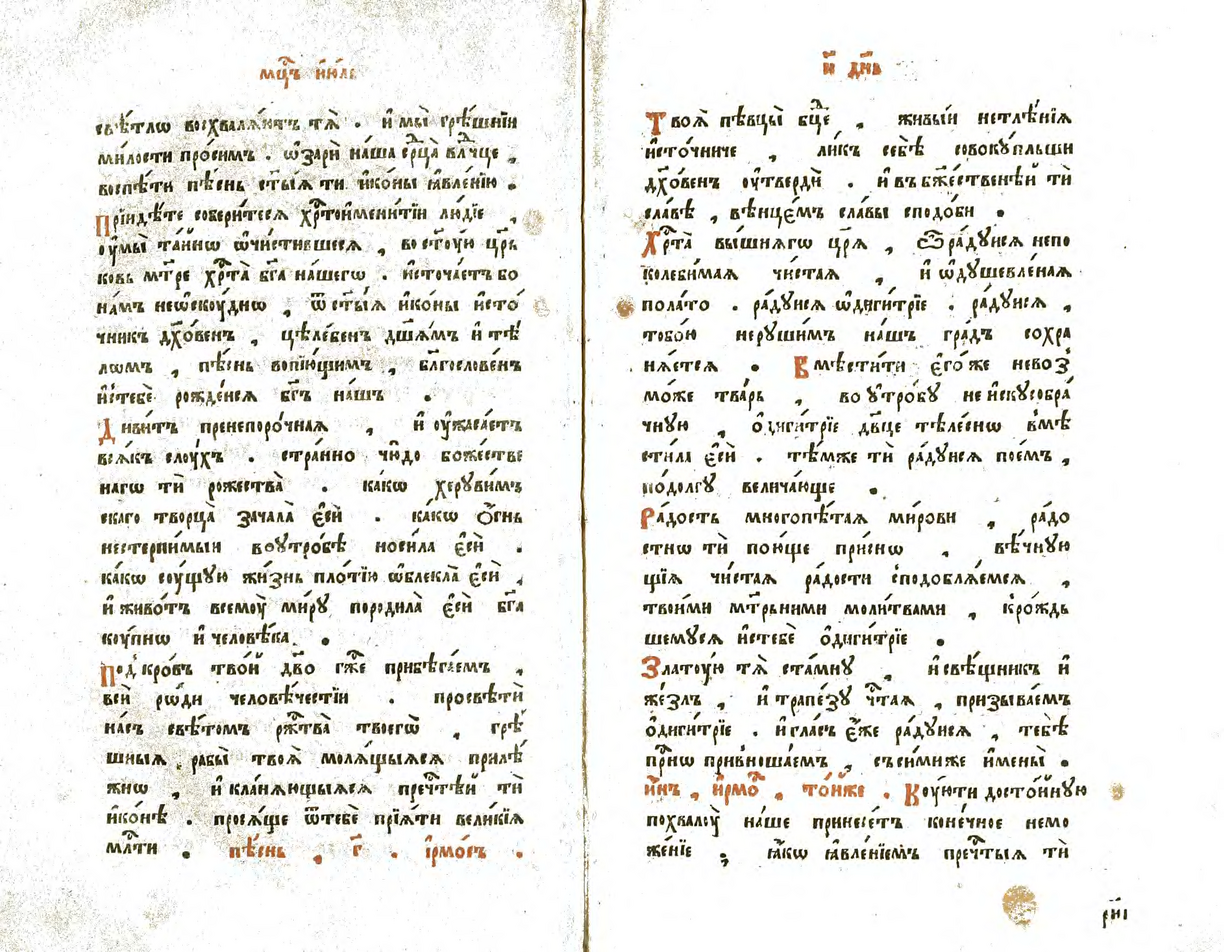 мц҇ъ і҆ю́ль
свѣ́тлѡ восхваля́ютъ тѧ̀ . и҆ мы̀ грѣ́шнїи
ми́лости про́симъ . ѡ҆зарѝ на́ша ср҇ца̀ влⷣчце ,
воспѣ́ти пѣ́снь ст҃ы́ѧ тѝ и҆ко́ны ꙗ҆вле́нїю .
Прїидѣ́те собери́тесѧ хрⷭ҇тоимени́тїи лю́дїе ,
оу҆мы̀ та́йнѡ ѡ҆чи́стившесѧ , во ст҃ꙋ́ю цр҃ь
ковь мт҃ре хрⷭ҇та̀ бг҃а на́шегѡ . и҆сточа́етъ бо
на́мъ неѡскꙋ́днѡ , ѿ ст҃ы́ѧ и҆ко́ны и҆сто́
чникъ дх҃о́венъ , цѣле́бенъ дш҃а́мъ и҆ тѣ
лѡ́мъ , пѣ́снь вопїю́щимъ , блг҃ослове́нъ
и҆стебѐ рожде́йсѧ бг҃ъ на́шъ .
Диви́тъ пренепоро́чнаѧ , и҆ оу҆жаса́етъ
всѧ́къ слꙋ́хъ . стра́нно чю́до боже́стве
нагѡ тѝ рожества̀ . ка́кѡ херꙋви́мъ
скаго творца̀ зачала̀ є҆сѝ . ка́кѡ ѻ҆́гнь
нестерпи́мыи воꙋтро́бѣ носи́ла є҆сѝ .
ка́кѡ сꙋ́щꙋю жи́знь пло́тїю ѡ҆блекла̀ є҆сѝ ,
и҆ живо́тъ всемꙋ̀ ми́рꙋ породила̀ є҆сѝ бг҃а
кꙋ́пнѡ и҆ человѣ́ка .
Под̾ кро́въ тво́й дв҃о гж҃е прибѣга́емъ ,
вси̑ ро́ди человѣ́честїи . просвѣтѝ
на́съ свѣ́томъ рж҇тва̀ твоегѡ̀ , грѣ́
шныѧ рабы̀ твоѧ̀ молѧ́щыѧсѧ прилѣ́
жнѡ , и҆ кла́нѧющыѧсѧ пречⷭ҇тѣй тѝ
и҆ко́нѣ . просѧ́ще ѿтебѐ прїѧ́ти вели́кїѧ
млⷭ҇ти . пѣ́снь , г҃ . і҆рмо́съ .
и҃ дн҃ь
Твоѧ̀ пѣвцы̀ бц҃е , живы́й нетлѣ́нїѧ
и҆сто́чниче , ли́къ себѣ̀ совокꙋ́пльши
дх҃о́венъ оу҆твердѝ . и҆ въ бж҃ественѣ́й тѝ
сла́вѣ , вѣнце́мъ сла́вы сподо́би .
Хрⷭ҇та̀ вы́шнѧгѡ цр҃ѧ , ѡ҆̀ ра́дꙋйсѧ непо
колеби́маѧ чи́стаѧ , и҆ ѡ҆дꙋшевле́наѧ
пола́то . ра́дꙋйсѧ ѡ҆диги́трїе . ра́дꙋйсѧ ,
тобо́ю нерꙋши́мъ на́шъ гра́дъ сохра
нѧ́етсѧ . Вмѣсти́ти є҆го́же невоз̾
мо́же тва́рь , во ꙋ҆тро́бꙋ неискꙋсобра́
чнꙋю , ѻ҆диги́трїе дв҃це тѣле́снѡ вмѣ
сти́ла є҆сѝ . тѣ́мже тѝ ра́дꙋйсѧ пое́мъ ,
подо́лгꙋ велича́юще .
Ра́дость многопѣ́таѧ ми́рови , ра́до
стнѡ тѝ пою́ще при́снѡ , вѣ́чнꙋю
щїѧ чи́стаѧ ра́дости сподоблѧ́емсѧ ,
твои́ми мт҃рьними моли́твами , к̾ро́ждь
шемꙋсѧ и҆стебѐ ѻ҆диги́трїе .
Златꙋ́ю тѧ̀ ста́мнꙋ , и҆свѣщникъ и҆
же́злъ , и҆ трапе́зꙋ чⷭ҇таѧ , призыва́емъ
ѻ҆диги́трїе . и҆гла́съ є҆́же ра́дꙋйсѧ , тебѣ̀
при́нѡ привноша́емъ , съси́миже и҆мены̀ .
и҆́нъ , і҆рмо́ , то́йже . Кꙋ́юти досто́йнꙋю
похвалꙋ̀ на́ше принесе́тъ коне́чное немо
же́нїе ; ꙗ҆́кѡ ꙗ҆вле́нїемъ пречⷭ҇тыѧ тѝ
рн҃і